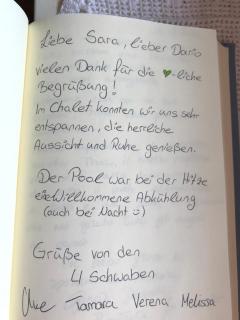 Liebe Sara, lieber Dario
vielen Dank für die 💚-liche
Begrüßung!
Im Chalet konnten wir uns sehr
entspannen, die herrliche
Aussicht und Ruhe genießen.
Der Pool war bei der Hitze
eine Willkommene Abkühlung
(auch bei Nacht :))
Grüße von den
4 Schwaben
Tamara Verena Melissa